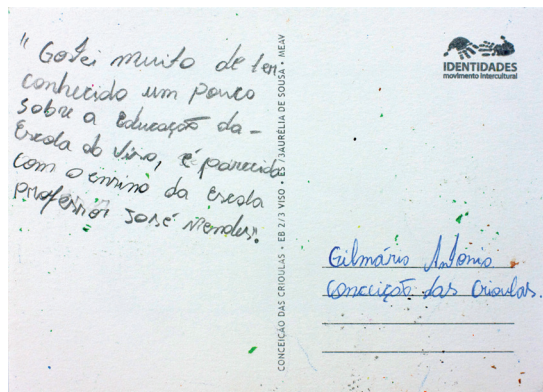 " Gostei muito de ter
conhecido um pouco
sobre a Educação da -
Escola do Viso, é parecida
com o ensino da escola
professor José Mendes.
CONCEIÇÃO DAS CRIOULAS • EB 2/3 VISO • ES /3AURÉLIA DE SOUSA • MEAV
IDENTIDADES
movimento intercultural
Gilmário Antonio
Conceição das Crioulas.